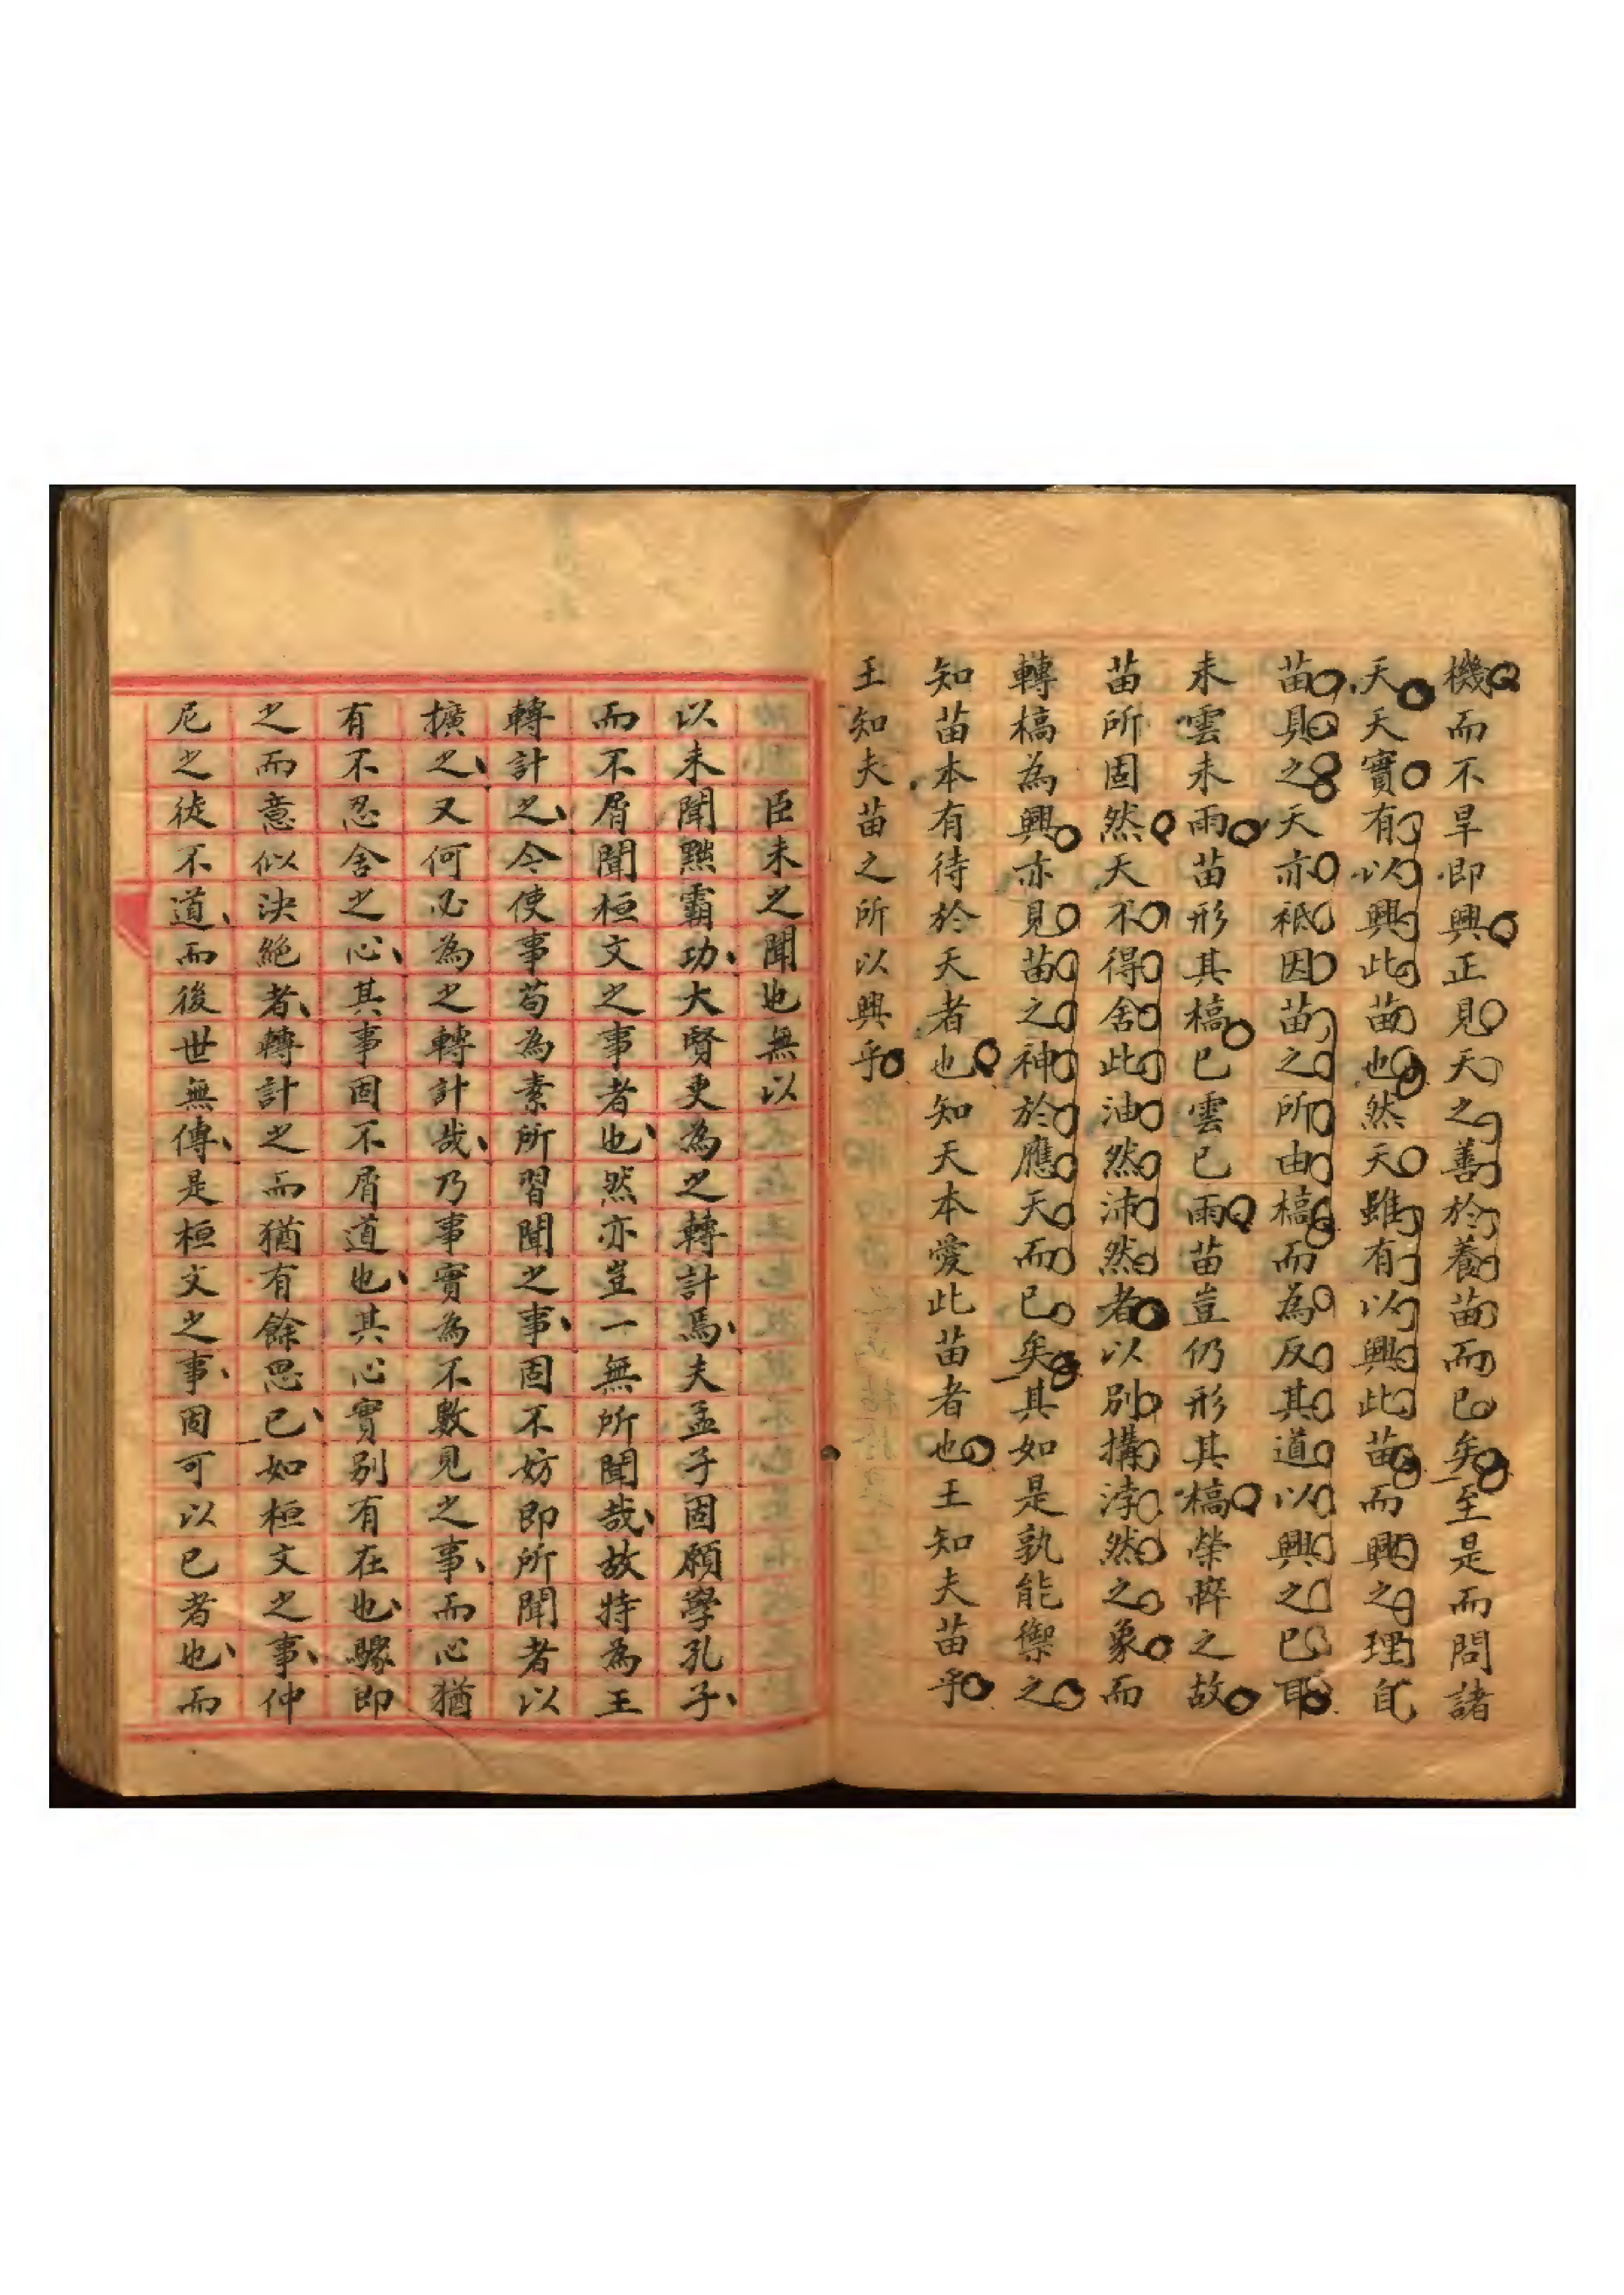 機而不旱即興正見天之善於養苗而已矣至是而問諸
天天實有以興此苗也然天雖有以興此苗而興之理自
苗具之天亦祗因苗之所由槁而為反其道以興之已耶
未雲未雨苗形其槁已雲已雨苗豈仍形其槁榮悴之故
苗所固然天不得舍此油然沛然者以別搆浡然之象而
轉槁為興亦見苗之神於應天而已矣其如是孰能禦之
知苗本有待於天者也知天本愛此苗者也王知夫苗乎
王知夫苗之所以興乎
臣未之聞也無以
以未聞黜霸功、大賢更為之轉計焉、夫孟子固願學孔子、
而不屑聞桓文之事者也、然亦豈一無所聞哉、故特為王
轉計之、今使事苟為素所習聞之事、固不妨即所聞者以
擴之、又何必為之轉計哉、乃事實為不數見之事、而心猶
有不忍舍之心、其事固不屑道也、其心實別有在也、驟即
之而意似決絕者、轉計之而猶有餘思已、如桓文之事、仲
尼之徒不道、而後世無傳、是桓文之事、固可以已者也、而